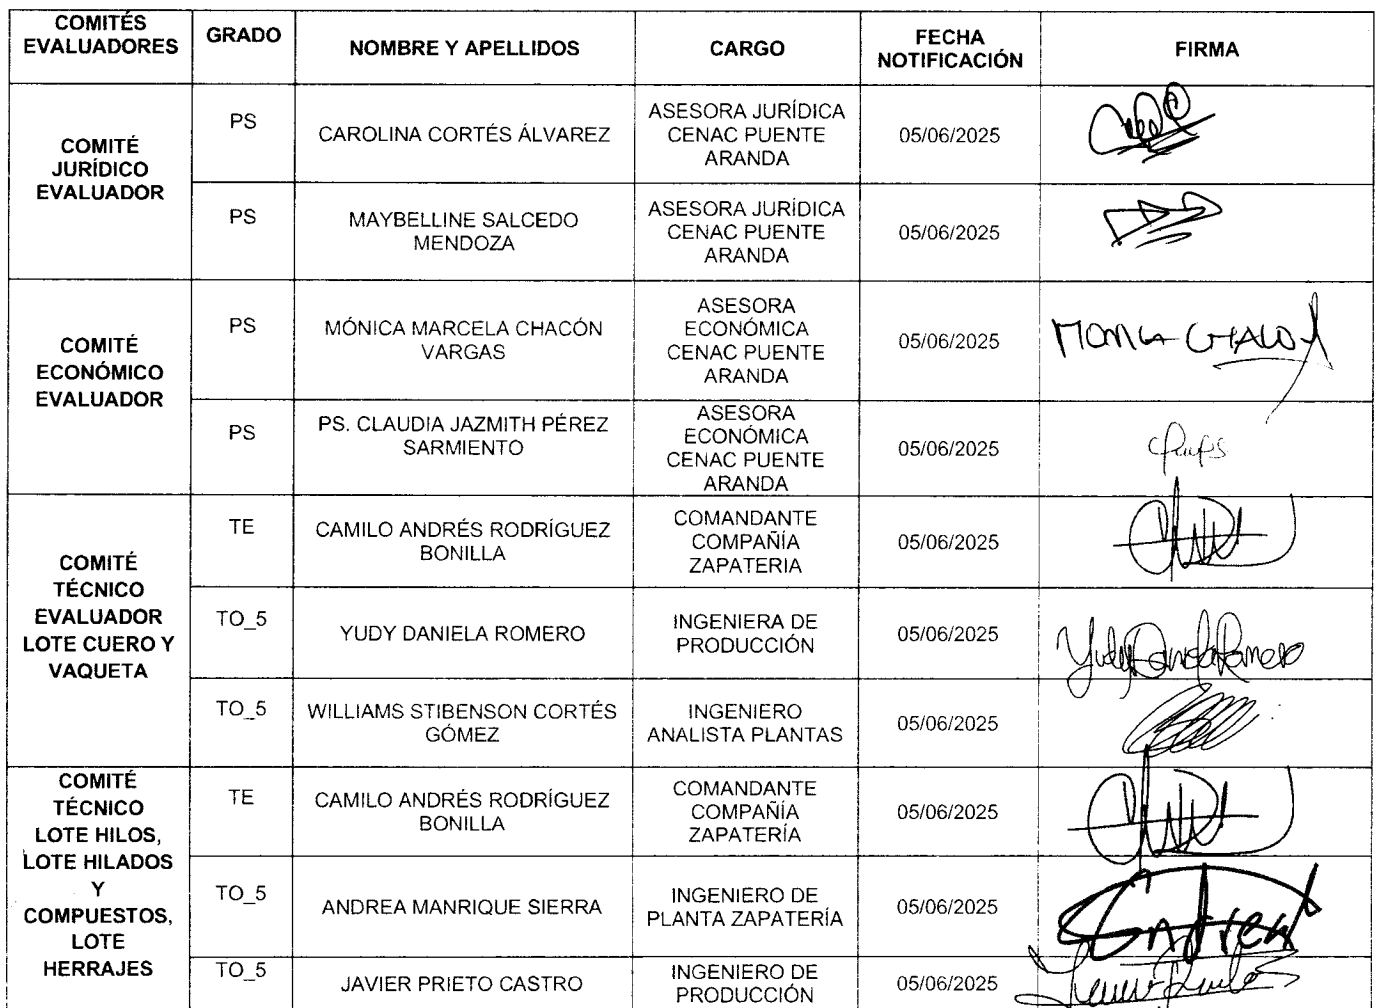 COMITÉS
EVALUADORES
GRADO
NOMBRE Y APELLIDOS
CARGO
FECHA
NOTIFICACIÓN
FIRMA
COMITÉ
JURÍDICO
EVALUADOR
PS
CAROLINA CORTÉS ÁLVAREZ
ASESORA JURÍDICA
CENAC PUENTE
ARANDA
05/06/2025
PS
MAYBELLINE SALCEDO
MENDOZA
ASESORA JURÍDICA
CENAC PUENTE
ARANDA
05/06/2025
COMITÉ
ECONÓMICO
EVALUADOR
PS
MÓNICA MARCELA CHACÓN
VARGAS
ASESORA
ECONÓMICA
CENAC PUENTE
ARANDA
05/06/2025
PS
PS. CLAUDIA JAZMITH PÉREZ
SARMIENTO
ASESORA
ECONÓMICA
CENAC PUENTE
ARANDA
05/06/2025
COMITÉ
TÉCNICO
EVALUADOR
LOTE CUERO Y
VAQUETA
TE
CAMILO ANDRÉS RODRÍGUEZ
BONILLA
COMANDANTE
COMPAÑÍA
ZAPATERIA
05/06/2025
TO_5
YUDY DANIELA ROMERO
INGENIERA DE
PRODUCCIÓN
05/06/2025
Yudy Daniela Romero
TO_5
WILLIAMS STIBENSON CORTÉS
GÓMEZ
INGENIERO
ANALISTA PLANTAS
05/06/2025
COMITÉ
TÉCNICO
LOTE HILOS,
LOTE HILADOS
Y
COMPUESTOS,
LOTE
HERRAJES
TE
CAMILO ANDRÉS RODRÍGUEZ
BONILLA
COMANDANTE
COMPAÑÍA
ZAPATERÍA
05/06/2025
TO_5
ANDREA MANRIQUE SIERRA
INGENIERO DE
PLANTA ZAPATERÍA
05/06/2025
TO_5
JAVIER PRIETO CASTRO
INGENIERO DE
PRODUCCIÓN
05/06/2025